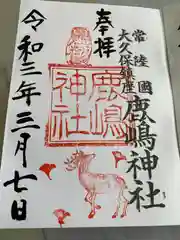 奉拝
常陸國
大久保鎮座
鹿嶋神社
鹿嶋神社
令和三年三月七日